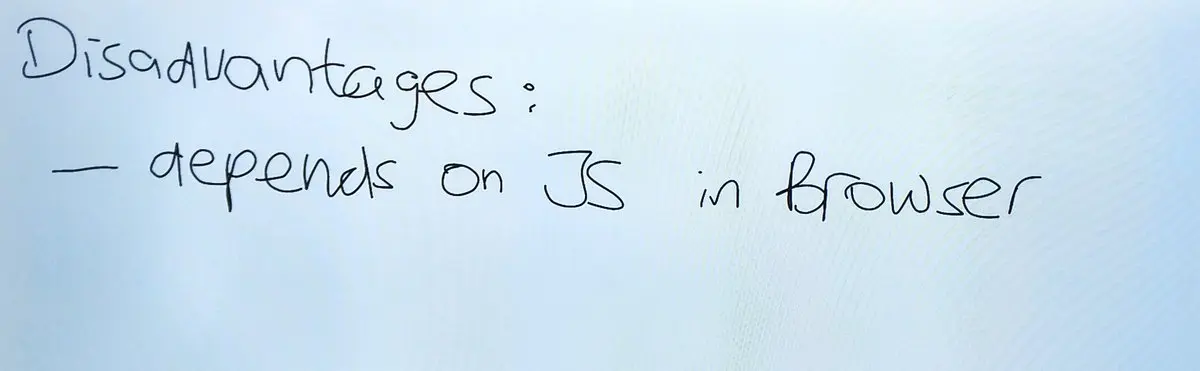 Disadvantages:
- depends on JS in Browser